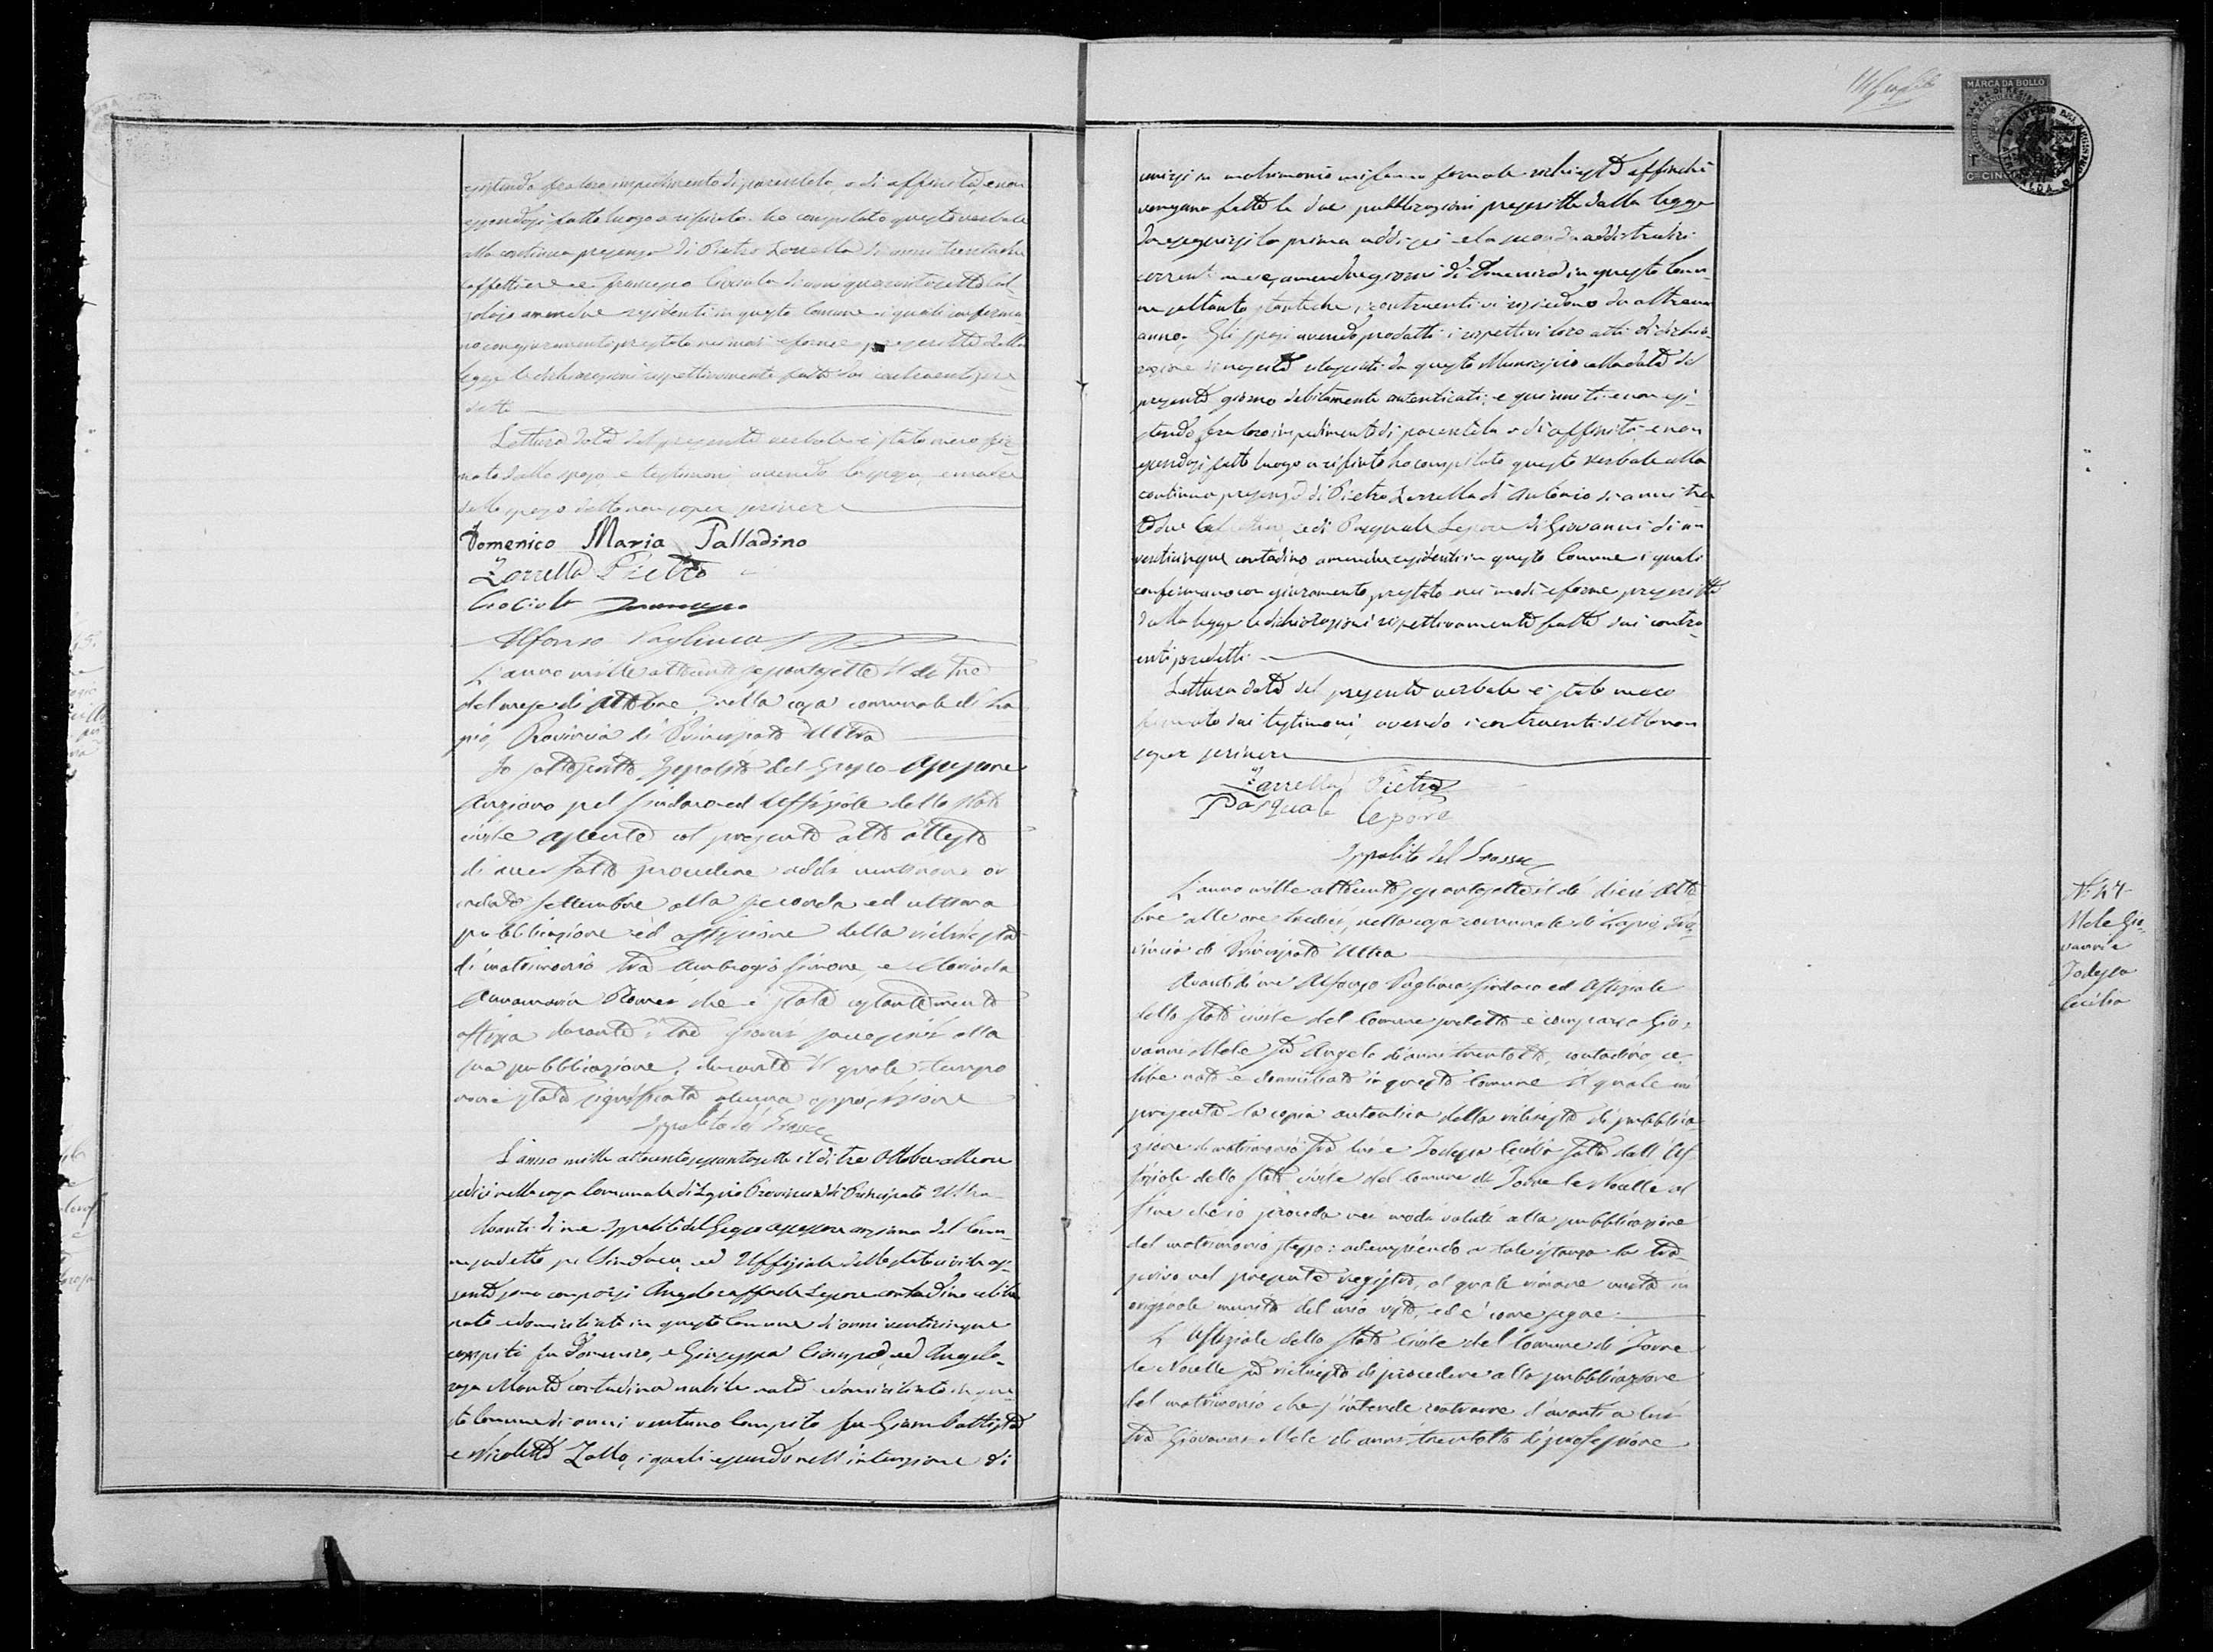 esistendo fra loro impedimento di parentela, o di affinità, e non
essendosi fatto luogo a rifiuto ho compilato questo verbale
alla continua presenza di Pietro Zarrella di anni trentadue
caffettiere e Francesco Crociola di anni quarantasette Cal-
zolajo amendue residenti in questo Comune i quali conferma-
no con giuramento prestato nei modi e forme prescritte dalla
legge le dichiarazioni rispettivamente fatte dai contraenti pre-
detti
Lettura data del presente verbale è stato meco fir-
mato dallo sposo e testimoni avendo la sposa, e madre
dello sposo detto non saper scrivere
Domenico Maria Palladino
Zarrella Pietro
Crociola Francesco
Alfonso Pagliuca
L'anno mille ottocento sessantasette il dì tre
del mese di Ottobre nella casa comunale di La-
pio, Provincia di Principato Ultra
Io sottoscritto Ippolito del Grosso Assessore
Anziano pel Sindaco ed Uffiziale dello stato
civile assente col presente atto attesto
di aver fatto procedere addì ventinove or
andato Settembre alla seconda ed ultima
pubblicazione ed affissione della richiesta
di matrimonio tra Ambrogio Simone, e
Annamaria Romei che è stata costantemente
affissa durante i tre giorni successivi alla
sua pubblicazione, durante il quale tempo
non è stata significata alcuna opposizione
Ippolito del Grosso
L'anno mille ottocento sessantasette il dì tre Ottobre alle ore
sedici nella casa Comunale di Lapio Provincia di Principato Ultra
Avanti di me Ippolito del Grosso assessore anziano del Comu-
ne predetto pel Sindaco, ed Uffiziale dello stato civile as-
sente sono comparsi Angeloraffaele Lepore contadino celibe
nato e domiciliato in questo Comune di anni venticinque
compiti fu Domenico, e Giuseppa Ciampa, ed Angela-
rosa Monte contadina nubile nata e domiciliata in que-
sto Comune di anni ventuno compiti fu Giambattista
e Nicoletta Zollo, i quali essendo nell'intenzione di
unirsi in matrimonio mi fanno formale richiesta affinché
vengano fatte le due pubblicazioni prescritte dalla legge
da eseguirsi la prima addì sei e la seconda addì tredici
corrente mese, amendue giorni di Domenica in questo Comu-
ne soltanto stanteché i contraenti vi risiedono da oltre un
anno. Gli sposi avendo prodotti i rispettivi loro atti di dichia-
razione di nascita rilasciati da questo Municipio colla data del
presente giorno debitamente autenticati, e qui uniti e non esi-
stendo fra loro impedimento di parentela o di affinità, e non
essendosi fatto luogo a rifiuto ho compilato questo verbale alla
continua presenza di Pietro Zarrella di Antonio di anni tren-
tadue Caffettiere, e di Pasquale Lepore di Giovanni di anni
venticinque contadino amendue residenti in questo Comune i quali
confermano con giuramento prestato nei modi e forme prescritte
dalla legge le dichiarazioni rispettivamente fatte dai contra-
enti predetti
Lettura data del presente verbale è stato meco
firmato dai testimoni, avendo i contraenti detto non
saper scrivere
Zarrella Pietro
Pasquale Lepore
Ippolito del Grosso
L'anno mille ottocento sessantasette il dì dieci Otto-
bre alle ore tredici, nella casa comunale di Lapio, Pro-
vincia di Principato Ultra
Avanti di me Alfonso Pagliuca Sindaco ed Uffiziale
dello stato civile del Comune predetto è comparso Gio-
vanni Mele fu Angelo di anni trentotto, contadino, ce-
libe nato e domiciliato in questo Comune il quale mi
presenta la copia autentica della richiesta di pubblica-
zione di matrimonio fra lui e Todesca Cecilia fatta dall'Uf-
fiziale dello stato civile del comune di Torre le Nocelle al
fine che io proceda nei modi voluti alla pubblicazione
del matrimonio stesso: adempiendo a tale istanza la tra-
scrivo nel presente registro, al quale rimane unita in
originale munita del mio visto, ed è come segue.
L'Uffiziale dello stato Civile del Comune di Torre
le Nocelle fa richiesta di procedere alla pubblicazione
del matrimonio che s'intende contrarre d'avanti a lui
tra Giovanni Mele di anni trentotto di professione
MARCA DA BOLLO
Nº 47
Mele Gio-
vanni e
Todesca
Cecilia